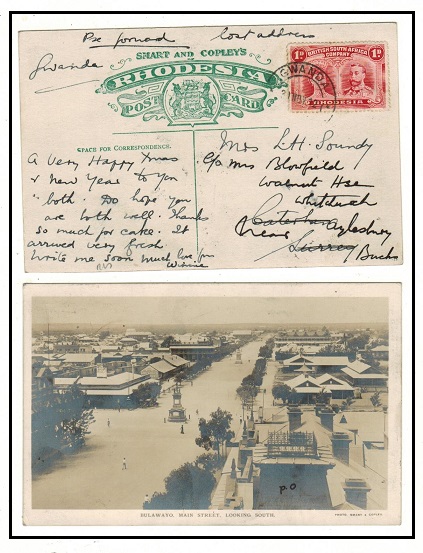 Pse forward lost address
Gwanda
SMART AND COPLEY'S
RHODESIA
POST CARD
BRITISH SOUTH AFRICA
COMPANY
1D 1D
RHODESIA
GWANDA
SPACE FOR CORRESPONDENCE.
A Very Happy Xmas
& New Year to you
both. Do hope you
are both well. Thank
so much for cake. It
arrived very fresh.
Write me soon much love from
Winnie
Mrs L.H. Soundy
c/o Mrs Blowfield
Walnut Hse
Whitchurch
Caterham Aylesbury
near Surrey Bucks
P.O
BULAWAYO. MAIN STREET. LOOKING SOUTH.
PHOTO. SMART & COPLEY